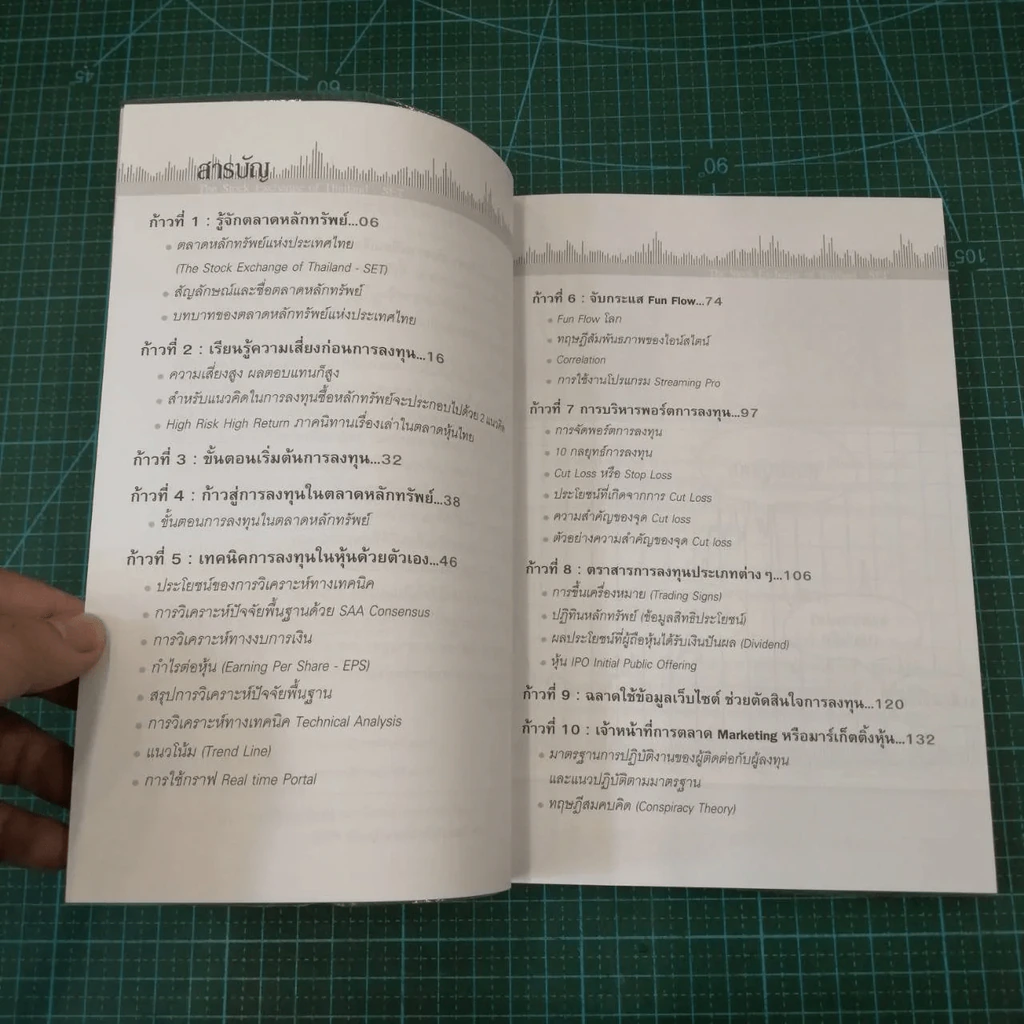 สารบัญ
The Stock Exchange of Thailand - SET
ก้าวที่ 1 : รู้จักตลาดหลักทรัพย์...06
ตลาดหลักทรัพย์แห่งประเทศไทย
(The Stock Exchange of Thailand - SET)
สัญลักษณ์และชื่อตลาดหลักทรัพย์
บทบาทของตลาดหลักทรัพย์แห่งประเทศไทย
ก้าวที่ 2 : เรียนรู้ความเสี่ยงก่อนการลงทุน...16
ความเสี่ยงสูง ผลตอบแทนก็สูง
สำหรับแนวคิดในการลงทุนซื้อหลักทรัพย์จะประกอบไปด้วย 2 แนวคิด
High Risk High Return ภาคนิทานเรื่องเล่าในตลาดหุ้นไทย
ก้าวที่ 3 : ขั้นตอนเริ่มต้นการลงทุน...32
ก้าวที่ 4 : ก้าวสู่การลงทุนในตลาดหลักทรัพย์...38
ขั้นตอนการลงทุนในตลาดหลักทรัพย์
ก้าวที่ 5 : เทคนิคการลงทุนในหุ้นด้วยตัวเอง...46
ประโยชน์ของการวิเคราะห์ทางเทคนิค
การวิเคราะห์ปัจจัยพื้นฐานด้วย SAA Consensus
การวิเคราะห์ทางงบการเงิน
กำไรต่อหุ้น (Earning Per Share - EPS)
สรุปการวิเคราะห์ปัจจัยพื้นฐาน
การวิเคราะห์ทางเทคนิค Technical Analysis
แนวโน้ม (Trend Line)
การใช้กราฟ Real time Portal
ก้าวที่ 6 : จับกระแส Fun Flow...74
Fun Flow โลก
ทฤษฎีสัมพันธภาพของไอน์สไตน์
Correlation
การใช้งานโปรแกรม Streaming Pro
ก้าวที่ 7 การบริหารพอร์ตการลงทุน...97
การจัดพอร์ตการลงทุน
10 กลยุทธ์การลงทุน
Cut Loss หรือ Stop Loss
ประโยชน์ที่เกิดจากการ Cut Loss
ความสำคัญของจุด Cut loss
ตัวอย่างความสำคัญของจุด Cut loss
ก้าวที่ 8 : ตราสารการลงทุนประเภทต่าง ๆ...106
การขึ้นเครื่องหมาย (Trading Signs)
ปฏิทินหลักทรัพย์ (ข้อมูลสิทธิประโยชน์)
ผลประโยชน์ที่ผู้ถือหุ้นได้รับเงินปันผล (Dividend)
หุ้น IPO Initial Public Offering
ก้าวที่ 9 : ฉลาดใช้ข้อมูลเว็บไซต์ ช่วยตัดสินใจการลงทุน...120
ก้าวที่ 10 : เจ้าหน้าที่การตลาด Marketing หรือมาร์เก็ตติ้งหุ้น...132
มาตรฐานการปฏิบัติงานของผู้ติดต่อกับผู้ลงทุน
และแนวปฏิบัติตามมาตรฐาน
ทฤษฎีสมคบคิด (Conspiracy Theory)
45
60
90
105